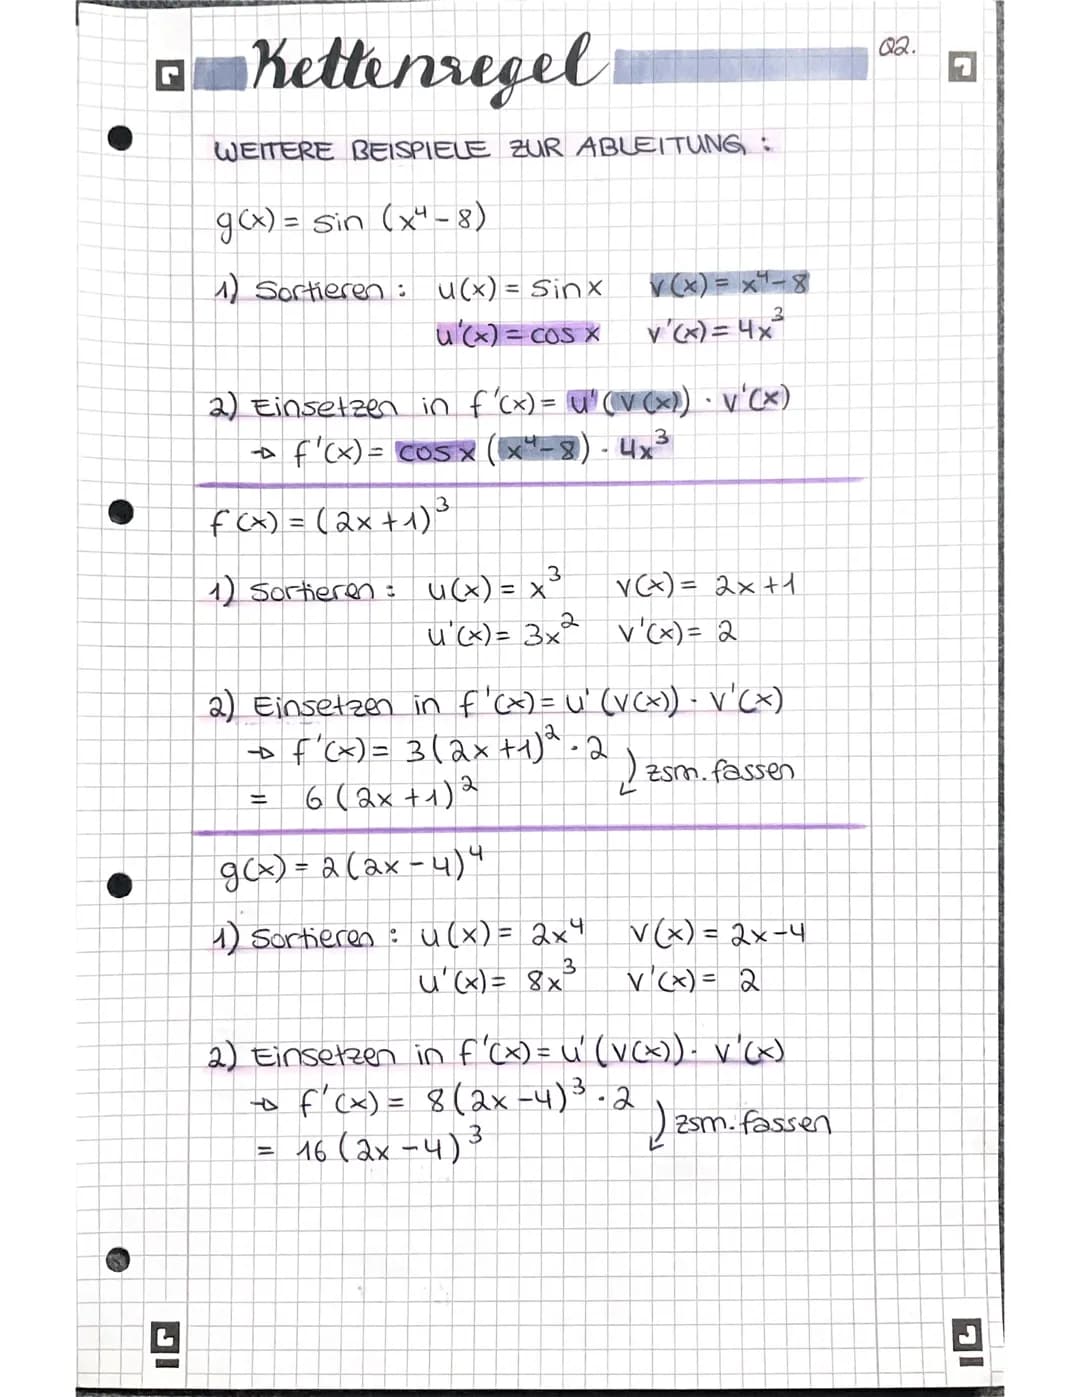 Kettenregel
Q2.
WEITERE BEISPIELE ZUR ABLEITUNG :
g(x) = sin (x⁴ - 8)
1) Sortieren : u(x) = sin x v(x) = x⁴ - 8
u'(x) = cos x v'(x) = 4x³
2) Einsetzen in f'(x) = u'(v(x)) · v'(x)
→ f'(x) = cos x (x⁴ - 8) · 4x³
f(x) = (2x + 1)³
1) Sortieren : u(x) = x³ v(x) = 2x + 1
u'(x) = 3x² v'(x) = 2
2) Einsetzen in f'(x) = u' (v(x)) · v'(x)
→ f'(x) = 3(2x + 1)² · 2
zsm. fassen
= 6 (2x + 1)²
g(x) = 2(2x - 4)⁴
1) Sortieren : u(x) = 2x⁴ v(x) = 2x - 4
u'(x) = 8x³ v'(x) = 2
2) Einsetzen in f'(x) = u' (v(x)) · v'(x)
→ f'(x) = 8(2x - 4)³ · 2
zsm. fassen
= 16 (2x - 4)³